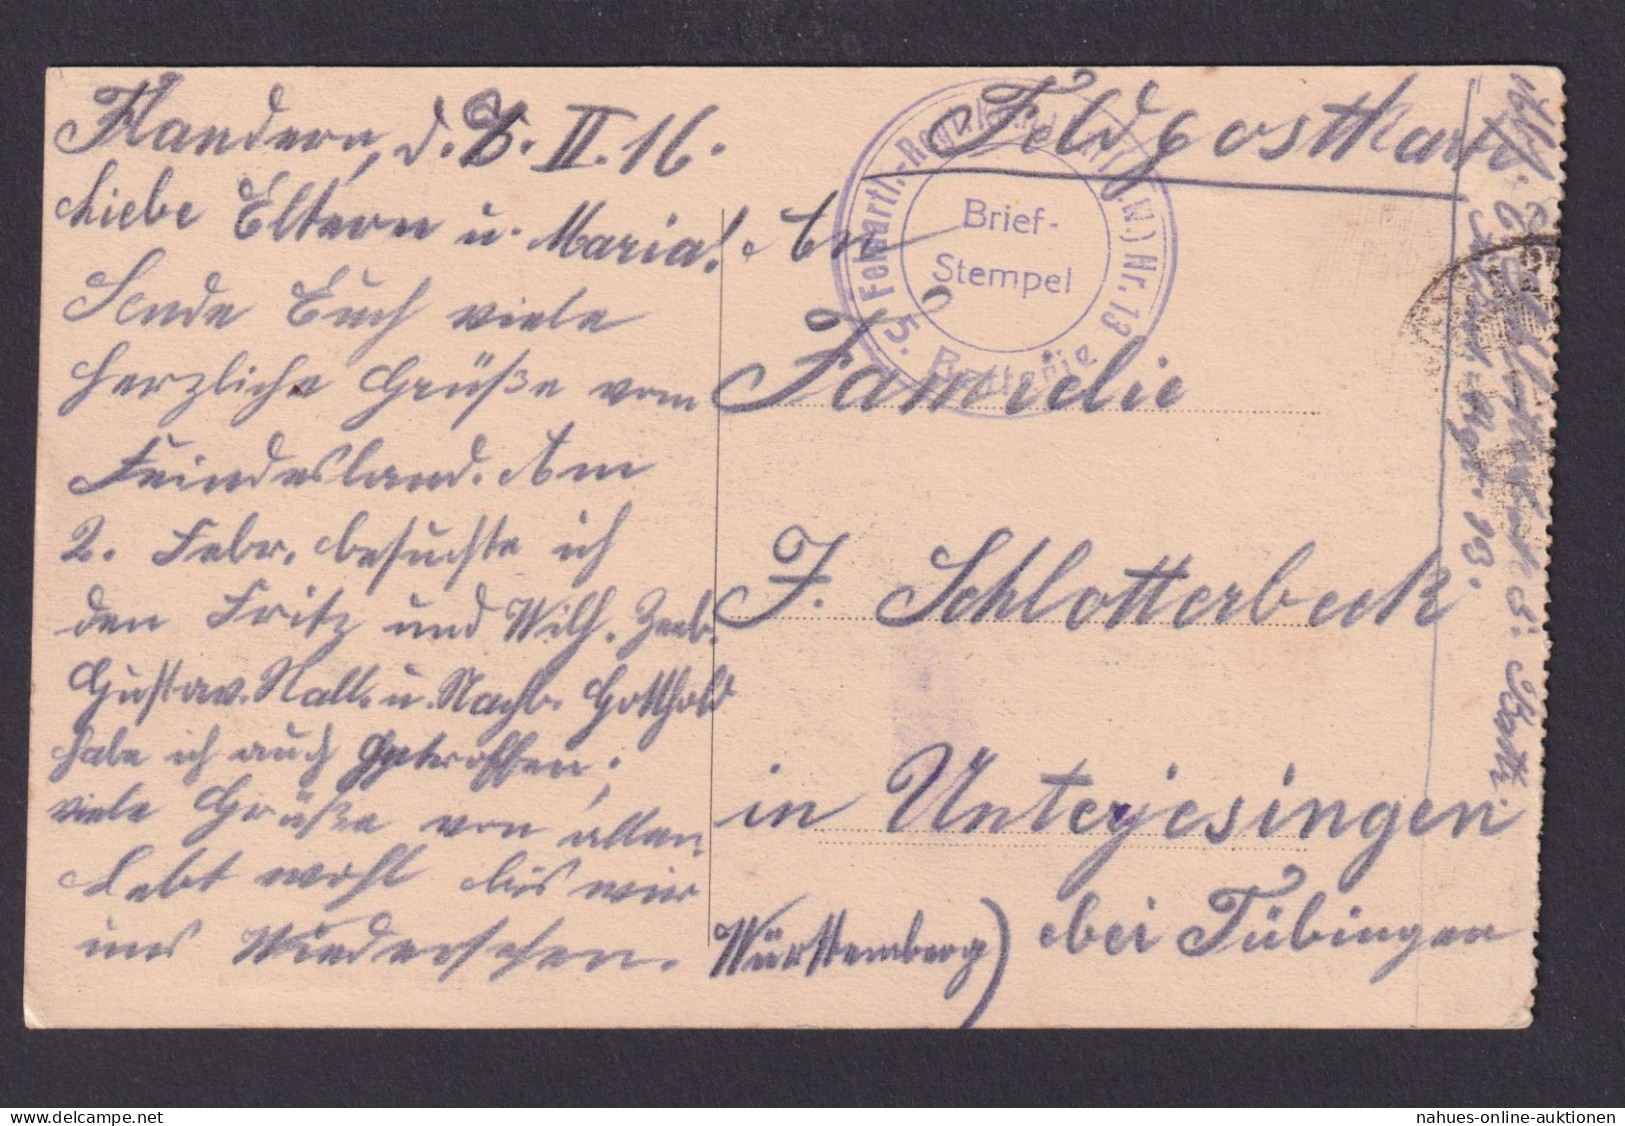 Flandern, d. 8. II. 16.
Liebe Eltern u. Maria!
Sende Euch viele
herzliche Grüße vom
Feindesland. Am
2. Febr. besuchte ich
den Fritz und Wilh. Zeeb.
Gustav. Nall. u. Nachb. Gotthold
habe ich auch getroffen;
viele Grüße von allen.
Lebt wohl bis wir
uns Wiedersehen.
Feldpostkarte
Feldartl.-Regt. Nr. 13
Brief-
Stempel
5. Batterie
An
Familie
J. Schlotterbeck
in Unterjesingen
bei Tübingen
Württemberg)
Schlotterbeck 5. Batt.
Regt. 13.
www.delcampe.net
nahues-online-auktionen